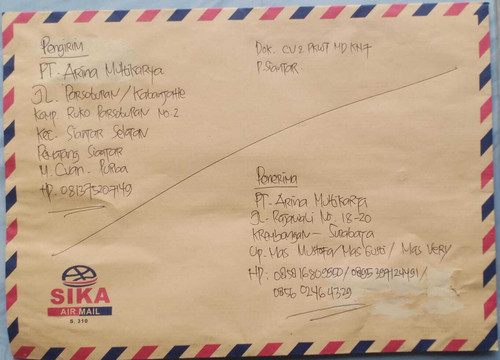 Pengirim
PT. Arina Multikarya
JL. Parsoburan / Kabanjahe
Komp. Ruko Parsoburan No.2
Kec. Siantar Selatan
Pematang Siantar
M. Cuan. Purba
HP. 081375207149
Dok. CV 2 PKWT MD KM7
P. Siantar
Penerima
PT. Arina Multikarya
JL. Rajawali No. 18-20
Krembangan - Surabaya
Up. Mas Mustofa/Mas Gusti/ Mas Very
HP: 085816809550/ 0895397124491/
0856 0246 4329
SIKA
AIR MAIL
S. 310